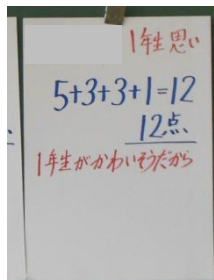 1年生思い
5+3+3+1=12
12点
1年生がかわいそうだから